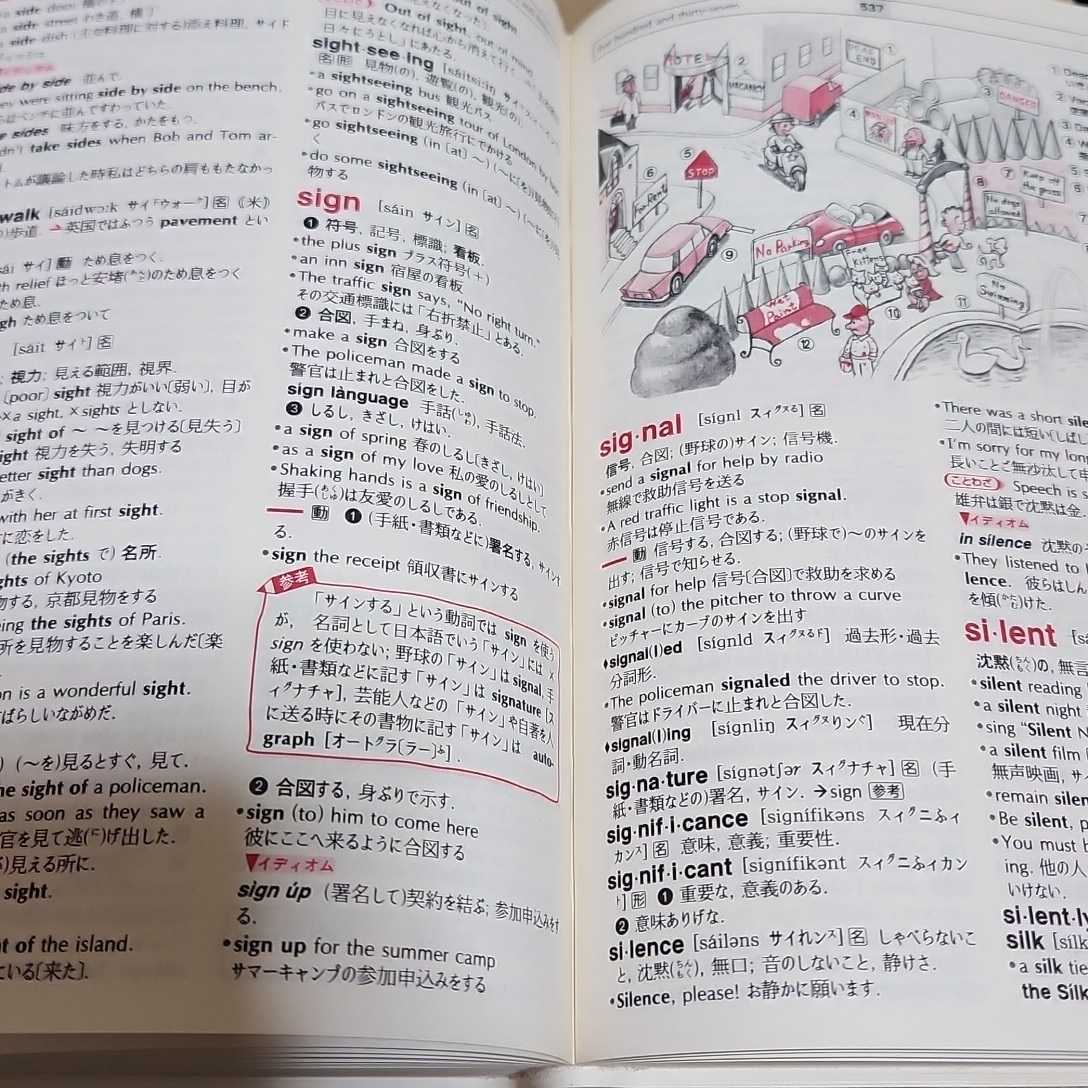 side by side 並んで.
were sitting side by side on the bench.
味方をする, かたをもつ.
take sides when Bob and Tom ar-
トムが議論した時私はどちらの肩ももたなかっ
walk [sáidwɔːk サイドウォーク] 名 (米)
歩道. → 英国ではふつう pavement とい
動 ため息をつく.
relief ほっと安堵のため息をつく
ため息.
ため息をついて
[sáit サイト] 名
視力; 見える範囲, 視界.
[poor] sight 視力がいい〔弱い〕, 目が
×a sight, ×sights としない.
sight of ~ ~を見つける〔見失う〕
視力を失う, 失明する
sight than dogs.
with her at first sight.
に恋をした.
(the sights で) 名所.
of Kyoto
京都見物をする
the sights of Paris.
所を見物することを楽しんだ〔楽
is a wonderful sight.
ばらしいながめだ.
(~を)見るとすぐ, 見て.
sight of a policeman.
as soon as they saw a
官を見て逃げ出した.
見える所に.
sight.
of the island.
ている〔来た〕.
Out of sight, out of mind.
目に見えなくなれば心から消えて行く.
日々にうとし」にあたる.
sight·see·ing
名形 見物(の), 遊覧(の), 観光(の).
•a sightseeing bus 観光バス
•go on a sightseeing tour of London by bus
バスでロンドンの観光旅行にでかける
•go sightseeing (in [at] ~) (~に[を])
く
•do some sightseeing (in [at] ~)
物する
sign [sáin サイン] 名
❶ 符号, 記号, 標識; 看板.
•the plus sign プラス符号(+)
•an inn sign 宿屋の看板
•The traffic sign says, "No right turn."
その交通標識には「右折禁止」とある.
❷ 合図, 手まね, 身ぶり.
•make a sign 合図をする
•The policeman made a sign to stop.
警官は止まれと合図をした.
sign lànguage 手話(しゅ), 手話法.
❸ しるし, きざし, けはい.
•a sign of spring 春のしるし〔きざし, けはい〕
•as a sign of my love 私の愛のしるしとして
•Shaking hands is a sign of friendship.
握手(あくしゅ)は友愛のしるしである.
— 動 ❶ (手紙・書類などに)署名する, サインす
る.
•sign the receipt 領収書にサインする
参考
「サインする」という動詞では sign を使う
が, 名詞として日本語でいう「サイン」には ×
sign を使わない; 野球の「サイン」は signal, 手
紙・書類などに記す「サイン」は signature [ス
ィグナチャ], 芸能人などの「サイン」や自著を人
に送る時にその書物に記す「サイン」は auto-
graph [オートグラ〔ラー〕ふ].
❷ 合図する, 身ぶりで示す.
•sign (to) him to come here
彼にここへ来るように合図する
▼イディオム
sign úp (署名して)契約を結ぶ; 参加申込みをす
る.
•sign up for the summer camp
サマーキャンプの参加申込みをする
five hundred and thirty-seven
537
HOTEL
VACANCY
DEAD END
DANGER
STOP
For Rent
Keep off the grass
No dogs allowed
No Parking
Free Kittens
Wet Paint
No Swimming
① ② ③ ④ ⑤ ⑥ ⑦ ⑧ ⑨ ⑩ ⑪ ⑫
sig·nal [sígnl スィグヌる] 名
信号, 合図; (野球の)サイン; 信号機.
•send a signal for help by radio
無線で救助信号を送る
•A red traffic light is a stop signal.
赤信号は停止信号である.
— 動 信号する, 合図する; (野球で)~のサインを
出す; 信号で知らせる.
•signal for help 信号〔合図〕で救助を求める
•signal (to) the pitcher to throw a curve
ピッチャーにカーブのサインを出す
♦signal(l)ed [sígnld スィグヌるド] 過去形・過去
分詞形.
•The policeman signaled the driver to stop.
警官はドライバーに止まれと合図した.
♦signal(l)ing [sígnliŋ スィグヌりング] 現在分
詞・動名詞.
sig·na·ture [sígnətʃər スィグナチャ] 名 (手
紙・書類などの)署名, サイン. →sign 参考
sig·nif·i·cance [signífikəns スィグニふィ
カンス] 名 意味, 意義; 重要性.
sig·nif·i·cant [signífikənt スィグニふィカン
ト] 形 ❶ 重要な, 意義のある.
❷ 意味ありげな.
si·lence [sáiləns サイれンス] 名 しゃべらないこ
と, 沈黙(ちんもく), 無口; 音のしないこと, 静けさ.
•Silence, please! お静かに願います.
•There was a short
二人の間には短い
•I'm sorry for my long
長いことご無沙汰して
ことわざ Speech is
雄弁は銀で沈黙は金.
▼イディオム
in sílence 沈黙の
•They listened to
lence. 彼らはしん
を傾けた.
si·lent
沈黙(ちんもく)の, 無言
•silent reading
•a silent night
•sing "Silent
•a silent film
無声映画, サ
•remain silent
•Be silent, p
•You must
ing. 他の人
いけない.
si·lent·ly
silk [sílk
•a silk tie
the Sílk